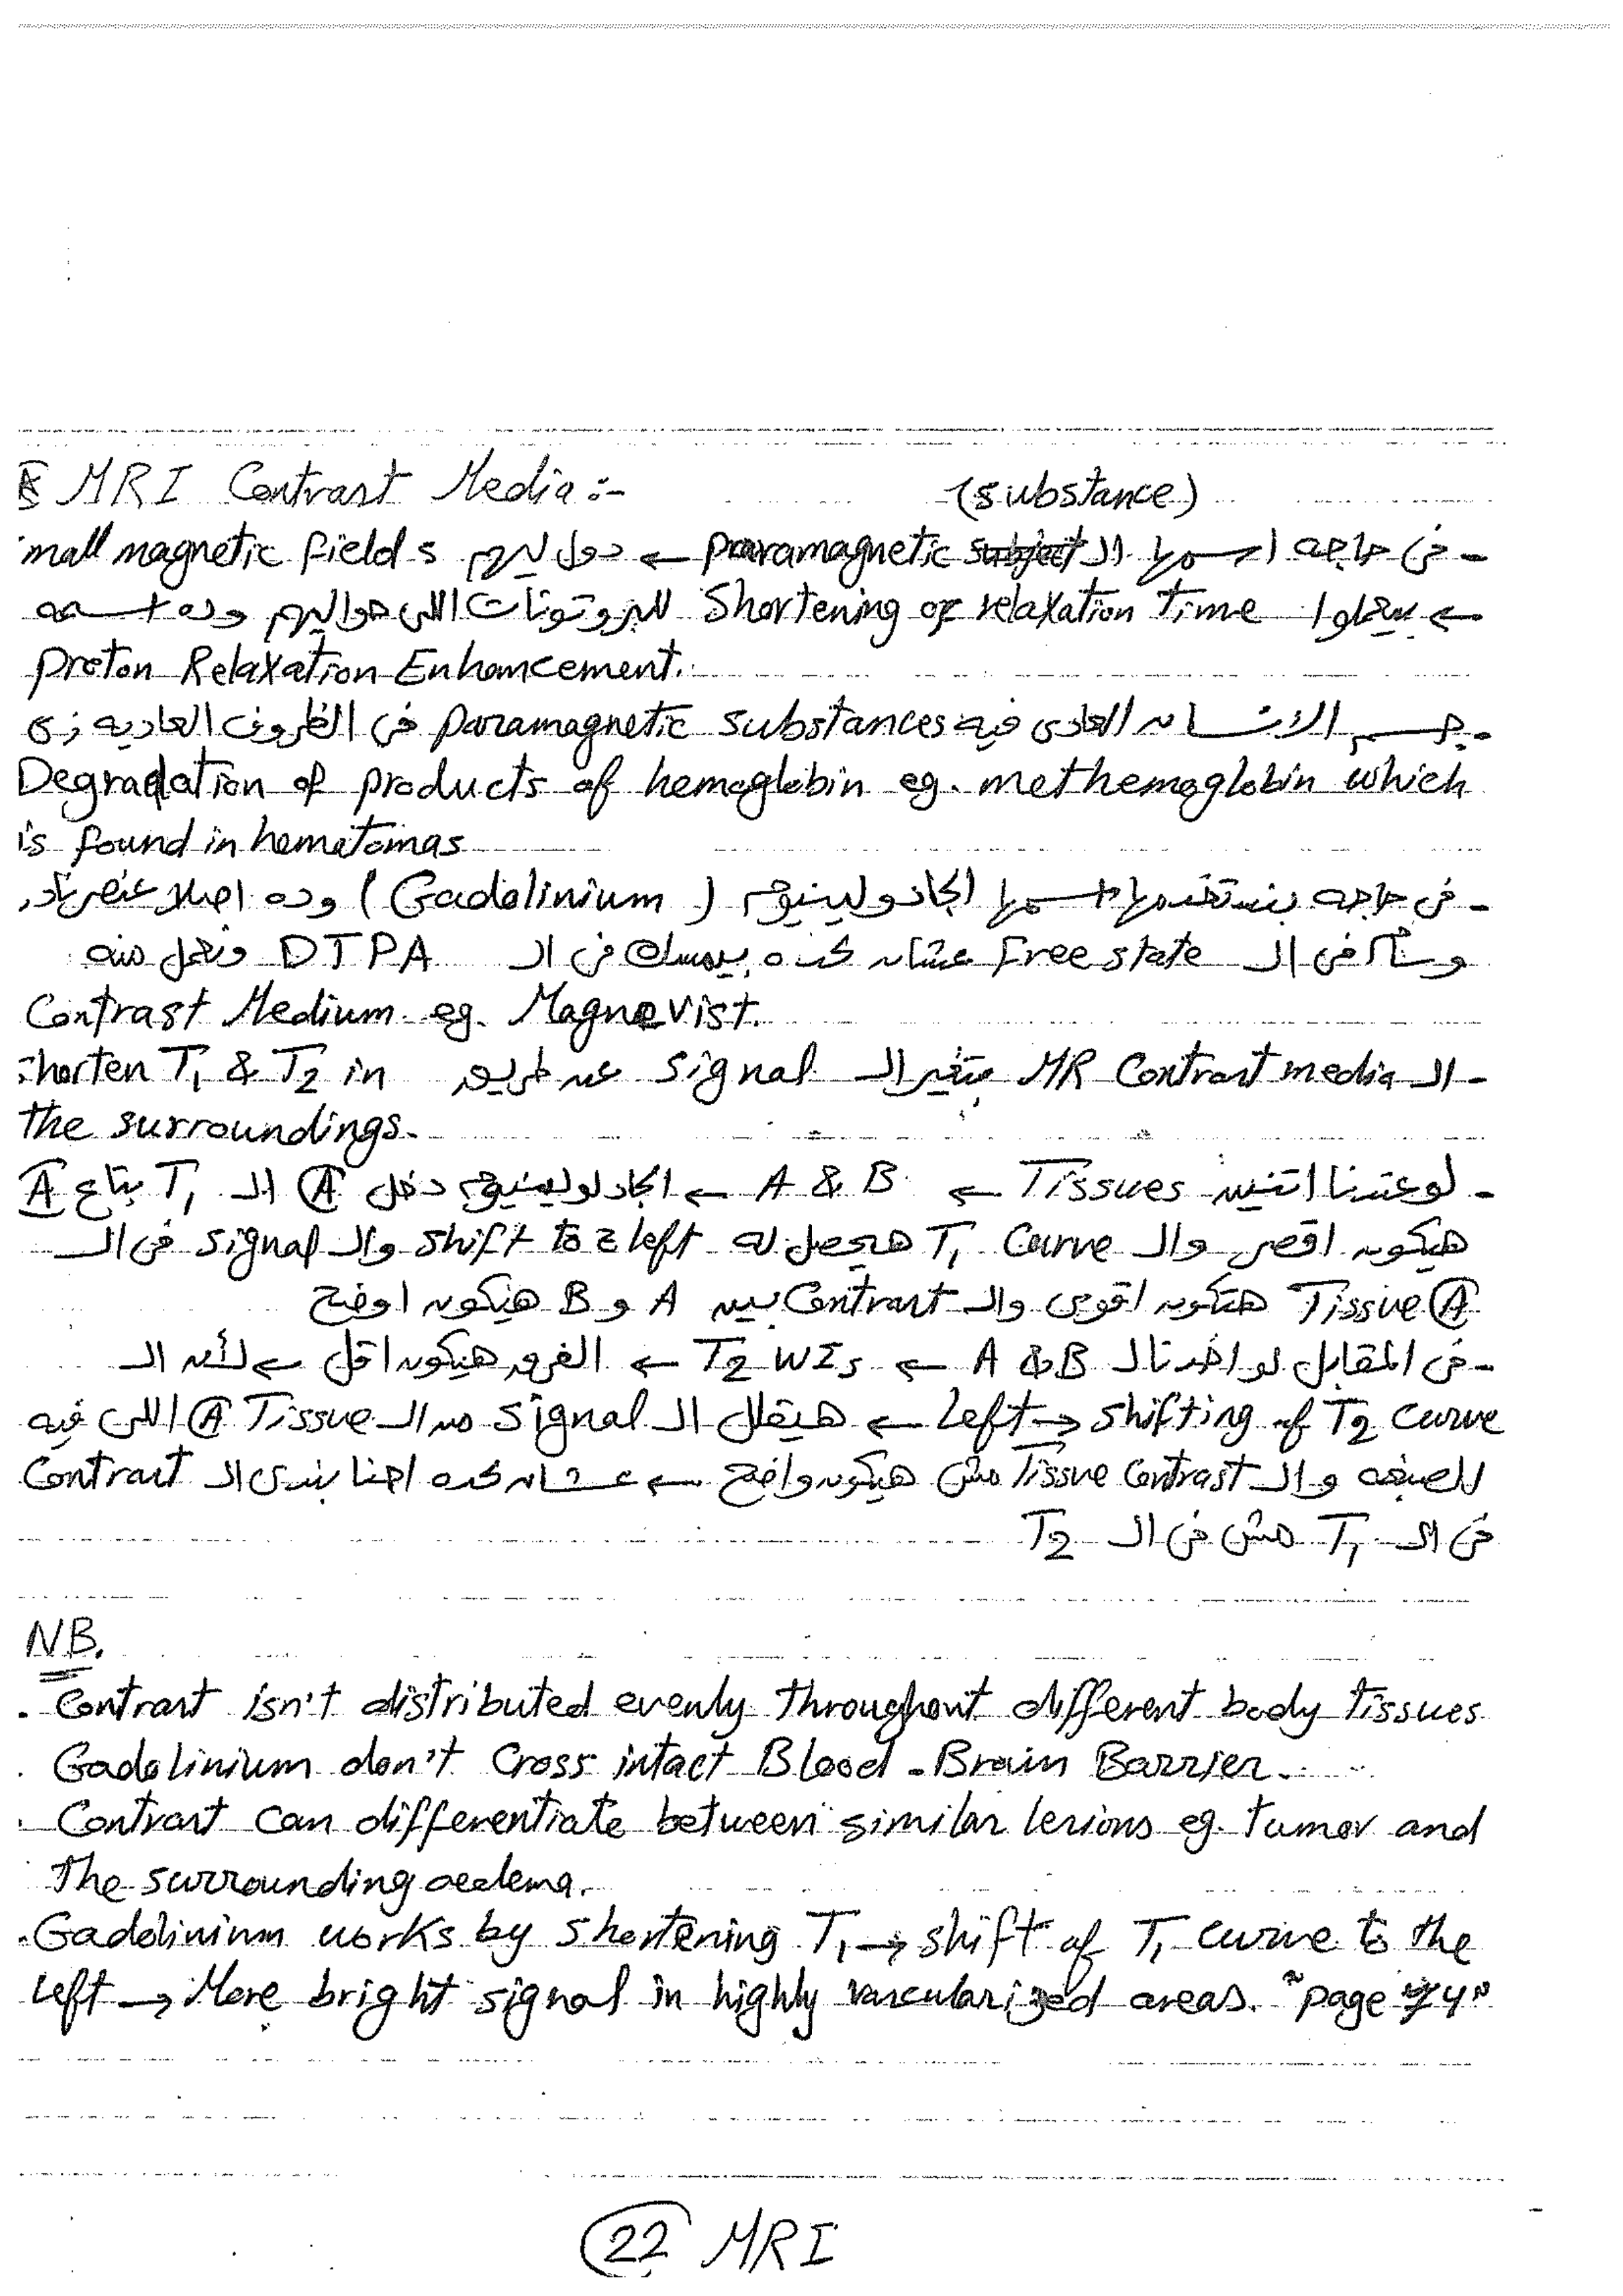 MRI Contrast Media :-
(substance)
- في حاجه اسمها الـ paramagnetic subject ← دول ليهم mall magnetic fields
← بيعملوا Shortening of relaxation time للبروتونات اللي حواليهم وده اسمه
Proton Relaxation Enhancement.
- جسم الانسان العادى فيه paramagnetic substances في الظروف العاديه زى
Degradation of products of hemoglobin eg. methemoglobin which
is found in hematomas
- في حاجه بنستخدمها اسمها الجادولينيوم (Gadolinium) وده اصلا عنصر نادر
وسام في الـ Free state عشان كده بيمسك في الـ DTPA ونعمل منه
Contrast Medium eg. Magnevist.
- الـ MR Contrast media بتغير الـ signal عن طريق horten T1 & T2 in
the surroundings.
- لو عندنا اتنين Tissues ← A & B ← الجادولينيوم دخل A الـ T1 بتاع A
هيكون اقصر والـ T1 Curve هيحصل له shift to z left والـ signal في الـ
Tissue A هتكون اقوى والـ Contrast بين A و B هيكون اوضح
- في المقابل لو اخدنا الـ A & B ← T2 WIs ← الفرق هيكون اقل ← لأن الـ
shifting of T2 curve → Left ← هيقلل الـ signal من الـ Tissue A اللي فيه
الصبغه والـ Tissue Contrast مش هيكون واضح ← عشان كده احنا بندى الـ Contrast
في الـ T1 مش في الـ T2
NB.
. Contrast isn't distributed evenly throughout different body tissues
. Gadolinium don't Cross intact Blood-Brain Barrier.
. Contrast can differentiate between similar lesions eg. tumor and
the surrounding oedema.
. Gadolinium works by shortening T1 → shift of T1 curve to the
left → More bright signal in highly vascularized areas. "page 4"
22 MRI